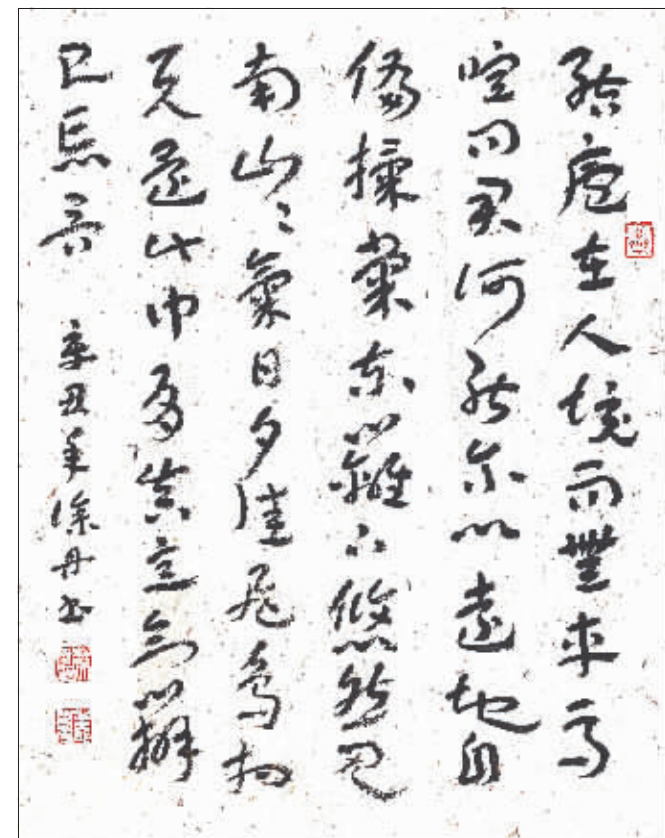 結廬在人境而無車馬
喧問君何能尔心遠地自
偏採菊東籬下悠然見
南山々氣日夕佳飛鳥相
與還此中有真意欲辨
已忘言 辛丑年徐丹书